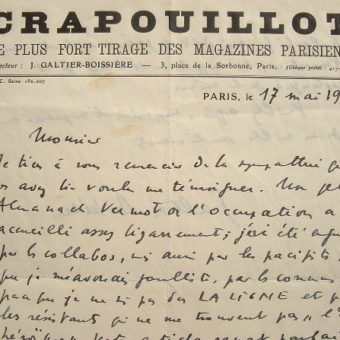 CRAPOUILLOT
E PLUS FORT TIRAGE DES MAGAZINES PARISIEN
ecteur : J. GALTIER-BOISSIÈRE — 3, place de la Sorbonne, Paris. (Chèque postal : 415-
C. Seine 182.207
PARIS, le 17 mai 19
Monsieur
Je tiens à vous remercier de la sympathie q
os avez bien voulu me témoigner. Un pet
Almanach Vermot de l'occupation a
accueilli assez bizarrement ; j'ai été
par les collabos, mais aussi par les pacifistes
que je m'avouais jouilliste, par les commun
parce que je ne suis pas dans LA LIGNE et p
les résistants qui ne me trouvent pas "l'